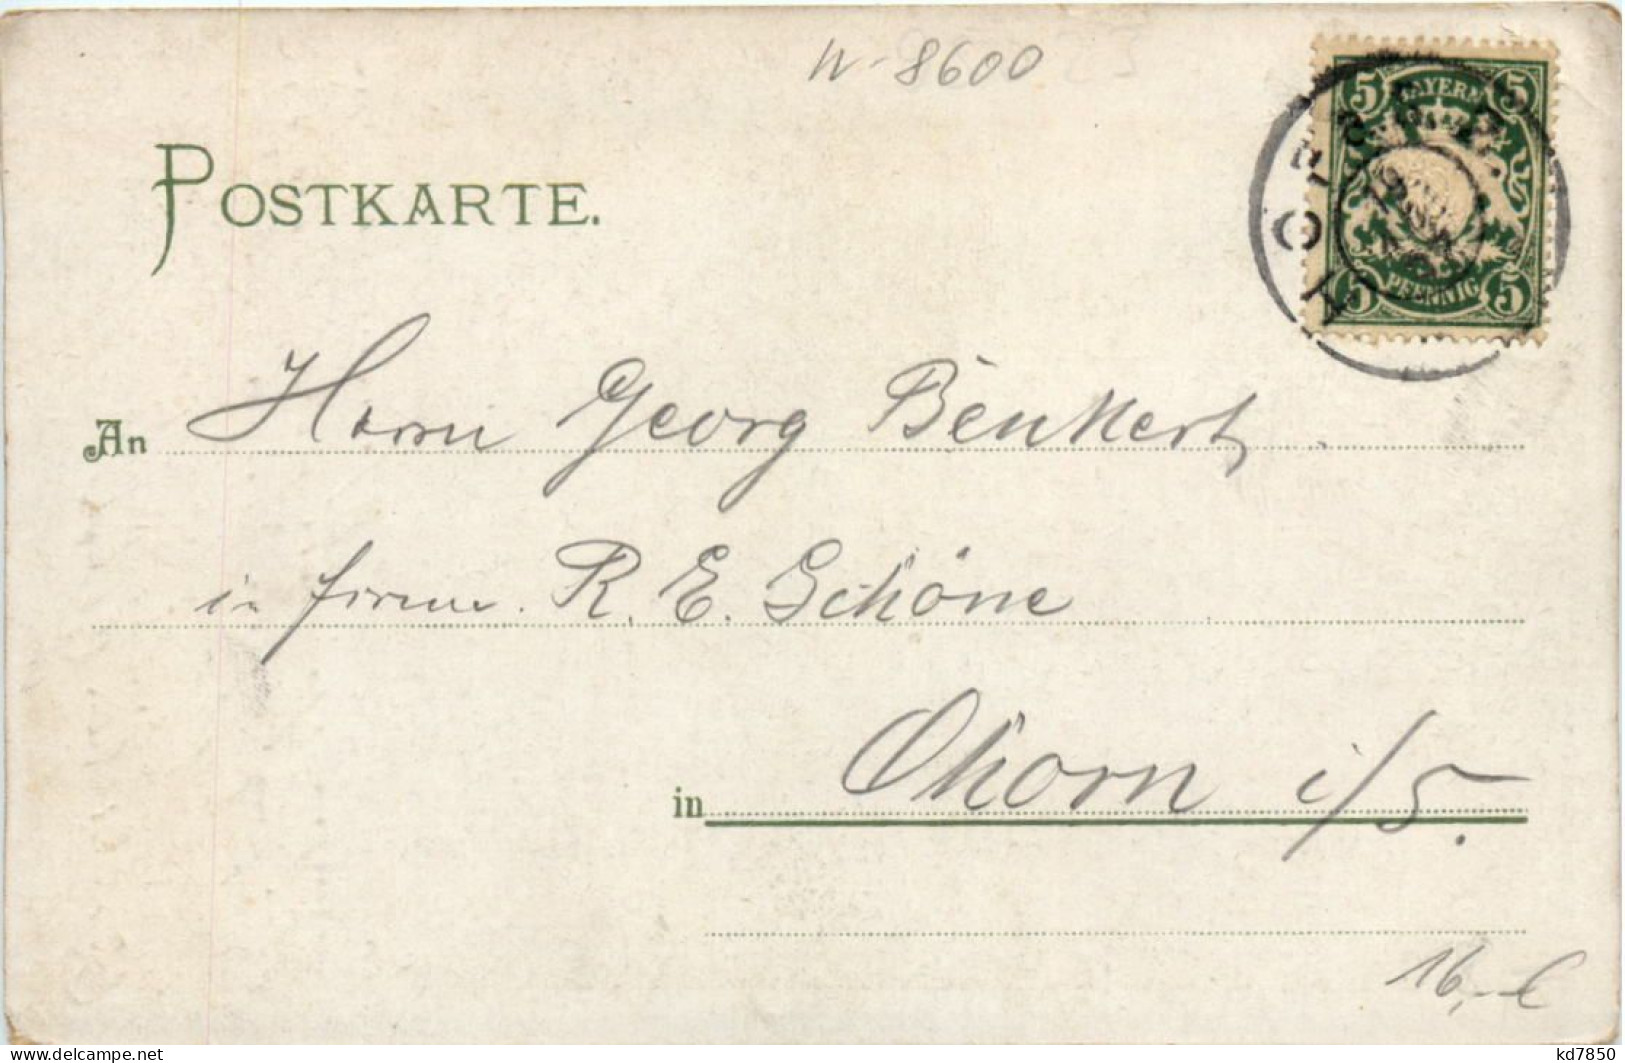 W-8600
POSTKARTE.
5 BAYERN 5
5 PFENNIG 5
An Herrn Georg Benkert.
in firma. R. E. Schöne
in Ohorn i/S.
16,-
www.delcampe.net
kd7850